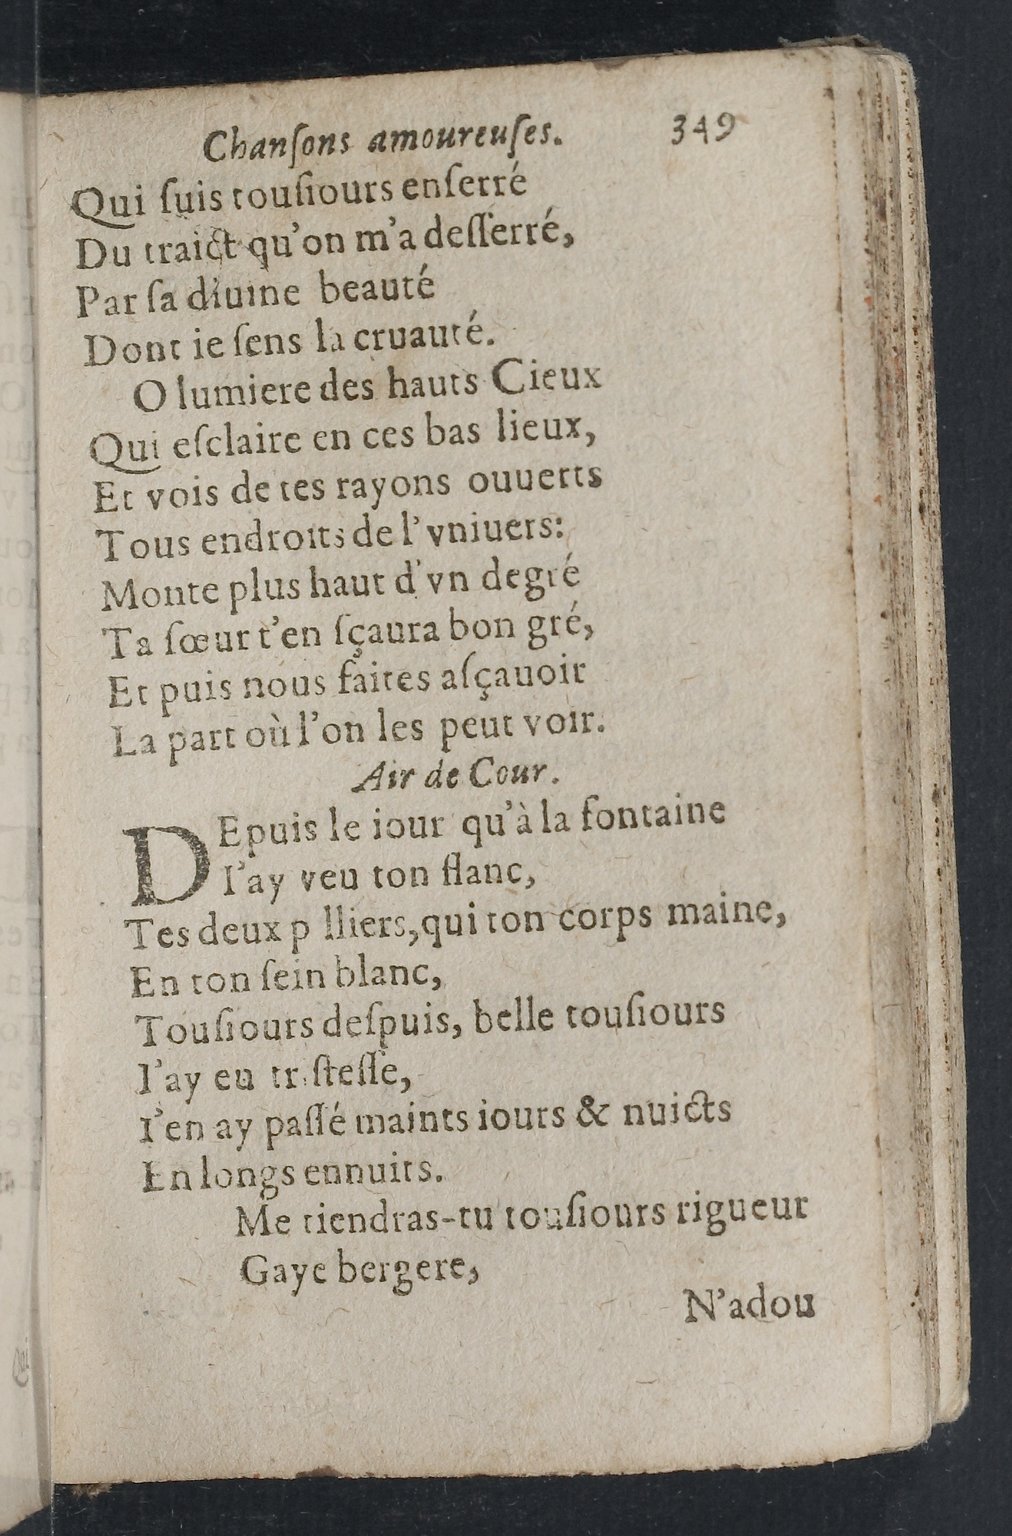 Chanſons amoureuſes. 349
Qui ſuis touſiours enſerré
Du traict qu'on m'a deſſerré,
Par ſa diuine beauté
Dont ie ſens la cruauté.
O lumiere des hauts Cieux
Qui eſclaire en ces bas lieux,
Et vois de tes rayons ouuerts
Tous endroits de l'vniuers:
Monte plus haut d'vn degré
Ta ſœur t'en ſçaura bon gré,
Et puis nous faites aſçauoir
La part où l'on les peut voir.
Air de Cour.
DEpuis le iour qu'à la fontaine
I'ay veu ton flanc,
Tes deux p lliers, qui ton corps maine,
En ton ſein blanc,
Touſiours deſpuis, belle touſiours
I'ay eu triſteſſe,
I'en ay paſſé maints iours & nuicts
En longs ennuits.
Me tiendras-tu touſiours rigueur
Gaye bergere,
N'adou